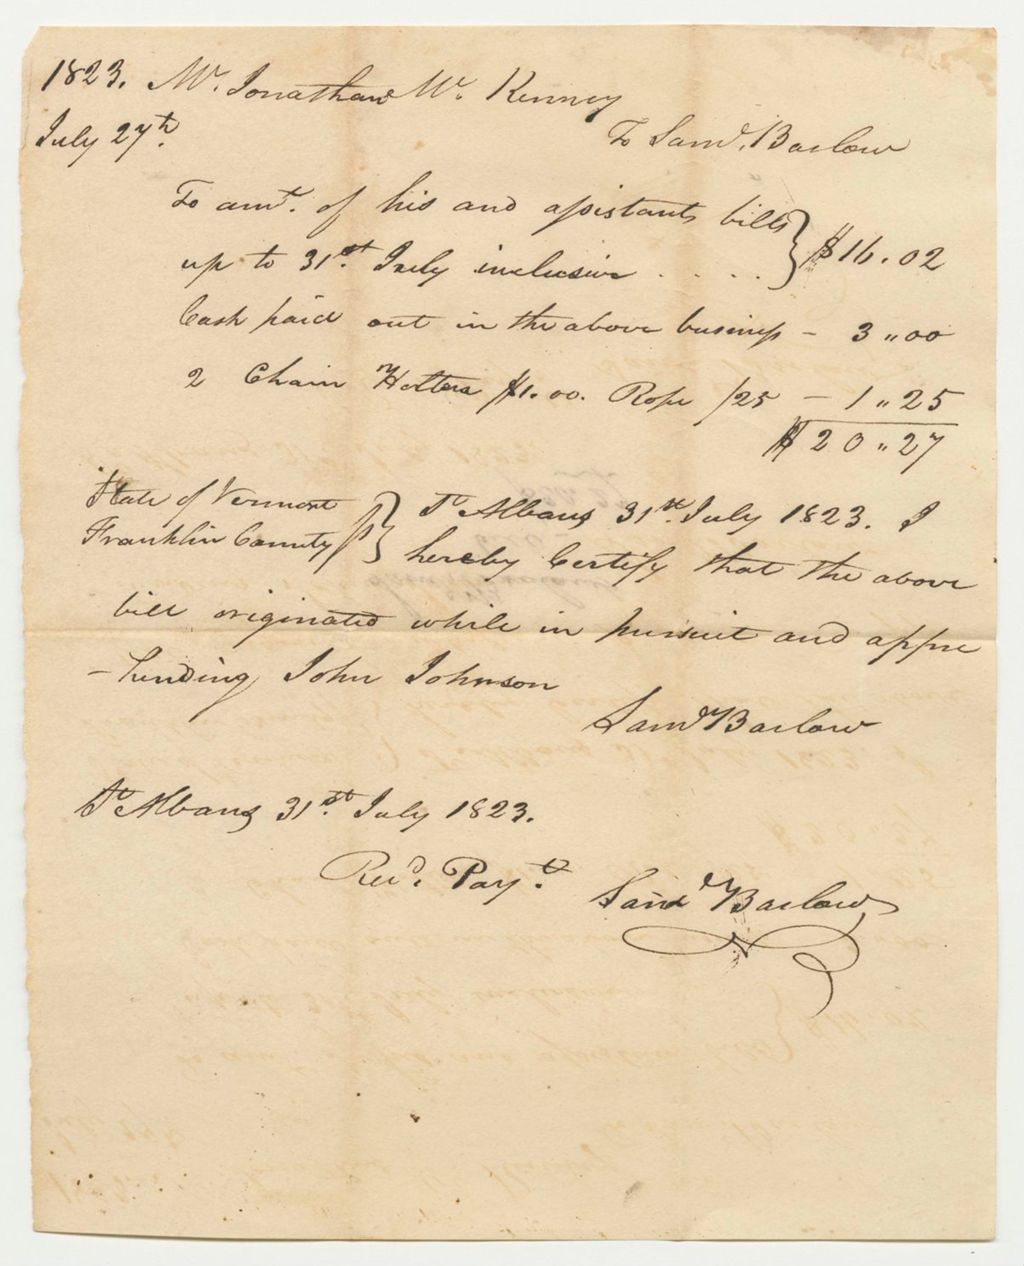 1823. Mr. Jonathan Mc. Kenney
July 27th.
To Saml. Barlow
To amt. of his and assistants bills
up to 31st. July inclusive . . . . } $16.02
Cash paid out in the above business – 3"00
2 Chain Holters $1.00. Rope /25 – 1"25
$20"27
State of Vermont } St Albans 31st. July 1823. I
Franklin County ss } hereby Certify that the above
bill originated while in pursuit and appre
-hending John Johnson
Saml Barlow
St Albans 31st. July 1823.
Recd. Payt.
Saml Barlow